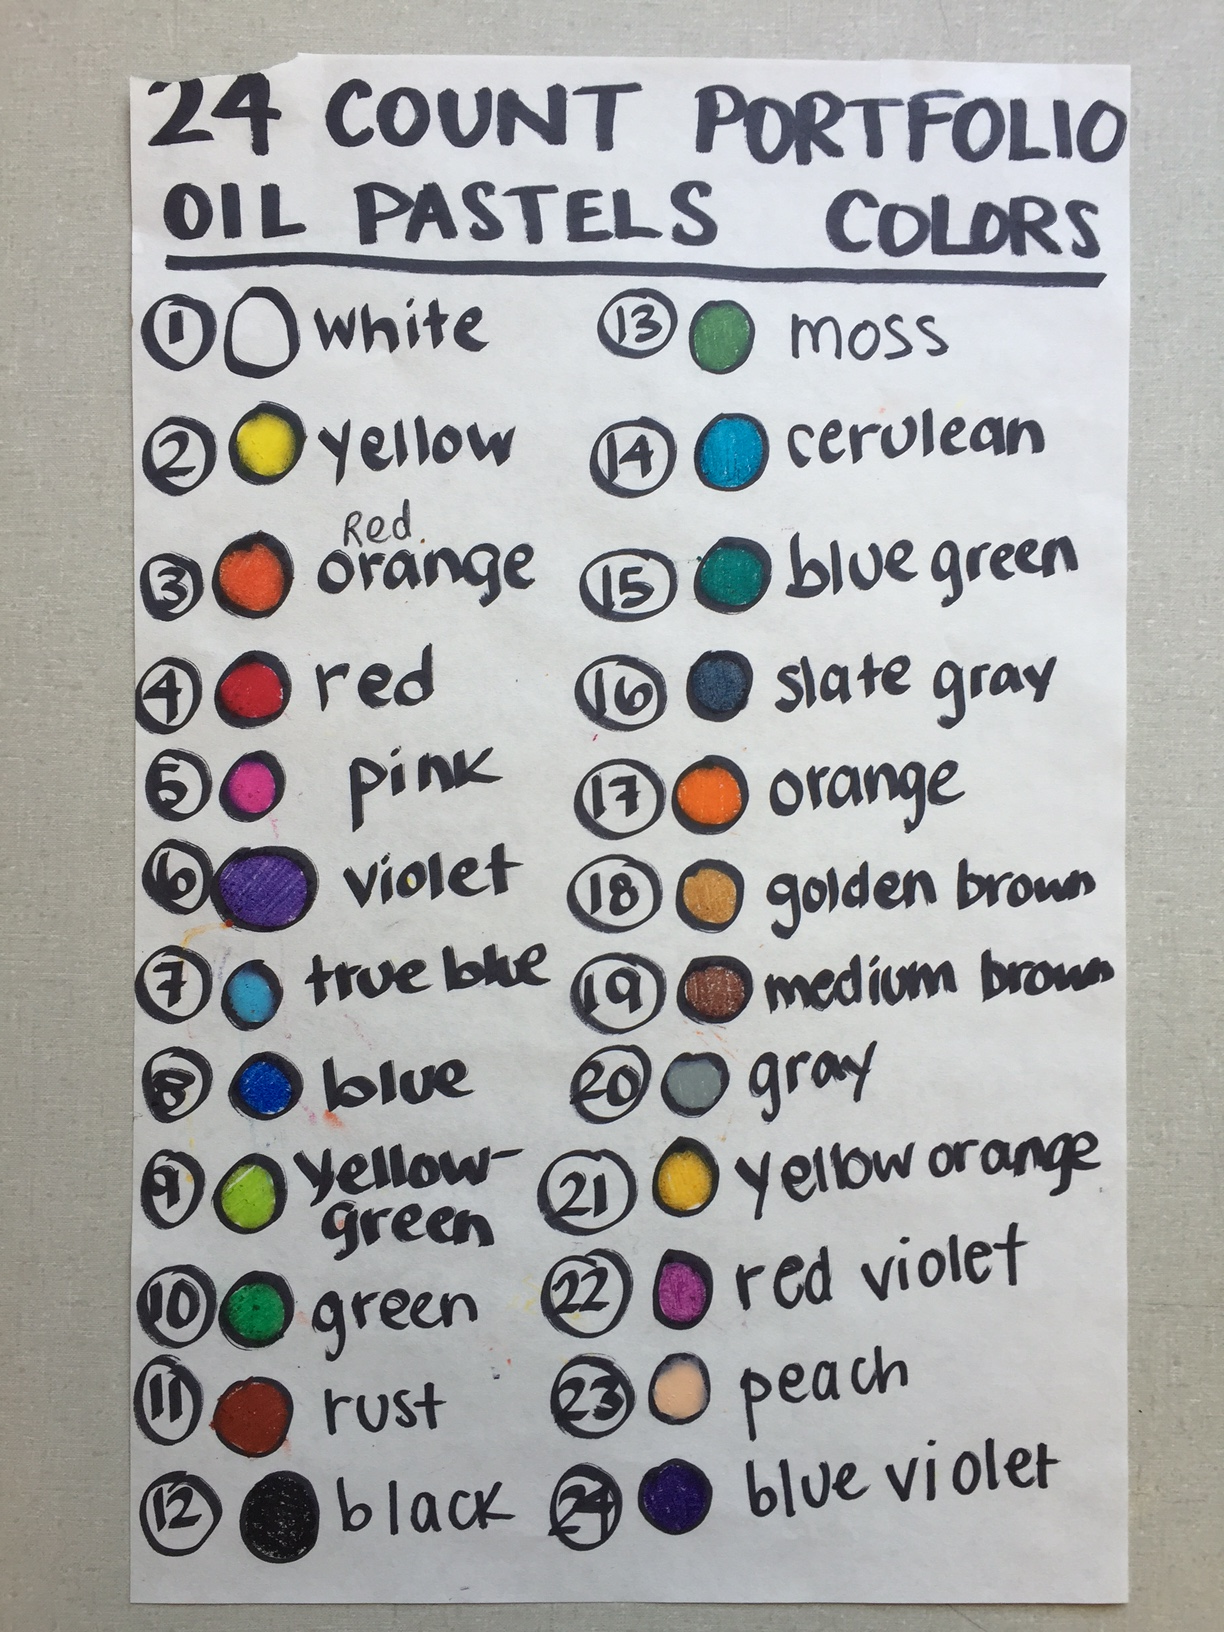 24 COUNT PORTFOLIO
OIL PASTELS COLORS
1 white
2 yellow
3 Red orange
4 red
5 pink
6 violet
7 true blue
8 blue
9 yellow-
green
10 green
11 rust
12 black
13 moss
14 cerulean
15 blue green
16 slate gray
17 orange
18 golden brown
19 medium brown
20 gray
21 yellow orange
22 red violet
23 peach
24 blue violet